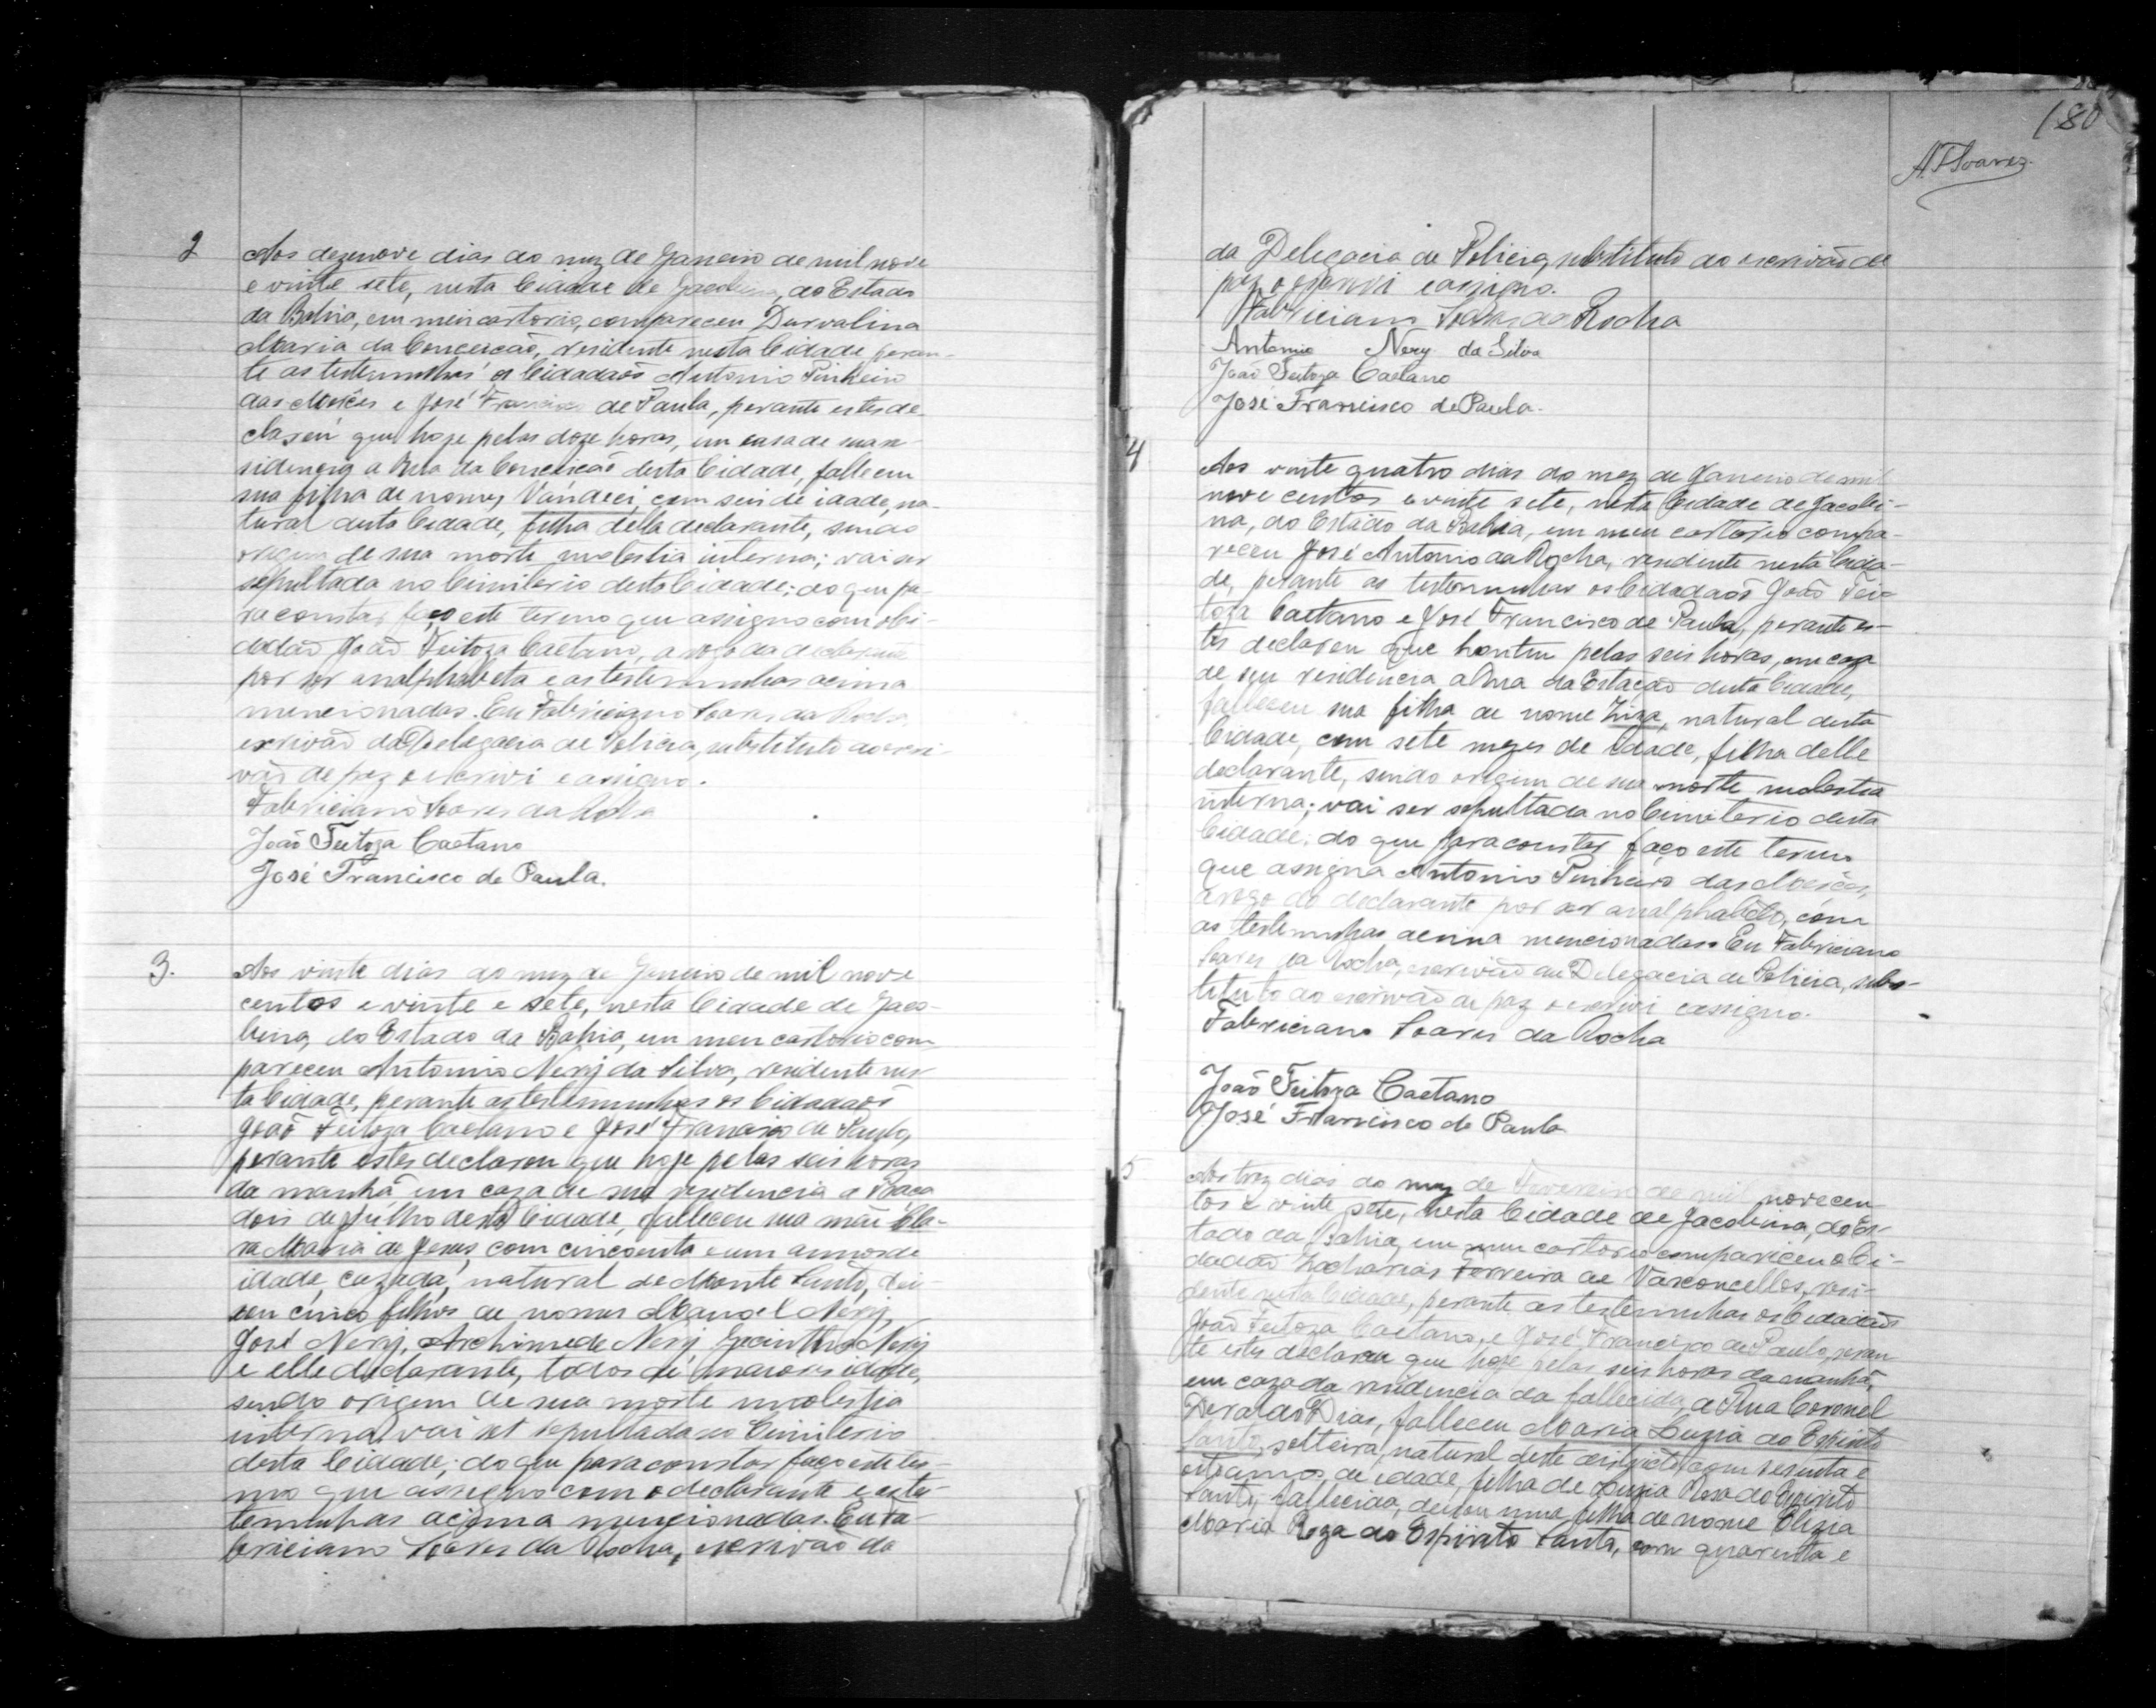 2
Aos dezenove dias do mez de Janeiro de mil nove
e vinte sete, nesta Cidade de Jacobina, do Estado
da Bahia, em meu cartorio, compareceu Durvalina
Maria da Conceicão, residente nesta Cidade, peran-
te as testemunhas os Cidadaõs Antonio Pinheiro
das Mercês e José Francisco de Paula, perante estes de
clarou que hoje pelas doze horas, em casa de sua re-
sidencia a Rua da Conceicaõ desta Cidade, falleceu
sua filha de nome, Vandeci, com seis de idade, na-
tural desta Cidade, filha della declarante, sendo
origem de sua morte molestia interna; vai ser
sepultada no Cimiterio desta Cidade; do que pa-
ra constar faço este termo que assigno com o Ci-
dadaõ Joaõ Feitoza Caetano, a rogo da declarante
por ser analphabeta e as testemunhas acima
mencionadas. Eu Fabriciano Soares da Rocha,
escrivaõ da Delegacia de Policia, substituto do escri-
vaõ de paz o escrivi e assigno.
Fabriciano Soares da Rocha
João Feitoza Caetano
José Francisco de Paula.
3.
Aos vinte dias do mez de Janeiro de mil nove
centos e vinte e sete, nesta Cidade de Jaco-
bina, do Estado da Bahia, em meu cartorio com
pareceu Antonio Nery da Silva, residente nes
ta Cidade, perante as testemunhas os Cidadaõs
Joaõ Feitoza Caetano e José Francisco de Paula,
perante estes declarou que hoje pelas seis horas
da manhã em caza de sua residencia a Praça
dois de Julho desta Cidade, falleceu sua mãe Cla-
ra Maria de Jesus, com cincoenta e um annos de
idade, cazada, natural de Monte Santo, dei-
xou cinco filhos de nomes Manoel Nery,
José Nery, Archimede Nery, Nery
e elle declarante, todos de maiores idade,
sendo origem de sua morte molestia
interna, vai ser sepultada no Cimiterio
desta Cidade; do que para constar faço este ter-
mo que assigno com o declarante e as tes-
temunhas acima mencionadas. Eu Fa-
briciano Soares da Rocha, escrivão da
180
A. F. Soares
da Delegacia de Policia, substituto do escrivão de
paz o escrivi e assigno.
Fabriciano Soares da Rocha
Antonio Nery da Silva
João Feitoza Caetano
José Francisco de Paula.
4
Aos vinte quatro dias do mez de Janeiro de mil
nove centos e vinte sete, nesta Cidade de Jacobi-
na, do Estado da Bahia, em meu cartorio compa-
receu José Antonio da Rocha, residente nesta Cida-
de, perante as testemunhas os Cidadaõs Joaõ Fei-
toza Caetano e José Francisco de Paula, perante es-
tes declarou que hontem pelas seis horas, em caza
de sua residencia a Rua da Estação desta Cidade,
falleceu sua filha de nome Ziza, natural desta
Cidade, com sete mezes de idade, filha delle
declarante, sendo origem de sua morte molestia
interna; vai ser sepultada no Cimiterio desta
Cidade; do que para constar faço este termo
que assigna Antonio Pinheiro das Mercês,
a rogo do declarante por ser analphabeto, com
as testemunhas acima mencionadas. Eu Fabriciano
Soares da Rocha, escrivaõ da Delegacia de Policia, subs-
tituto do escrivaõ de paz o escrivi e assigno.
Fabriciano Soares da Rocha
João Feitoza Caetano
José Francisco de Paula
5
Aos trez dias do mez de Fevereiro de mil novecen
tos e vinte sete, nesta Cidade de Jacobina, do Es-
tado da Bahia, em meu cartorio compareceu o Ci-
dadaõ Zacharias Ferreira de Vasconcellos, resi-
dente nesta Cidade, perante as testemunhas os Cidadaõs
Joaõ Feitoza Caetano, e José Francisco de Paula, peran
te estes declarou que hoje pelas seis horas da manhã,
em caza da residencia da fallecida, a Rua Coronel
Deraldo Dias, falleceu Maria Luzia do Espirito
Santo, solteira, natural deste districto, com sesenta e
oito annos de idade, filha de Luzia Roza do Espirito
Santo, fallecida, deixou uma filha de nome
Maria Roza do Espirito Santo, com quarenta e